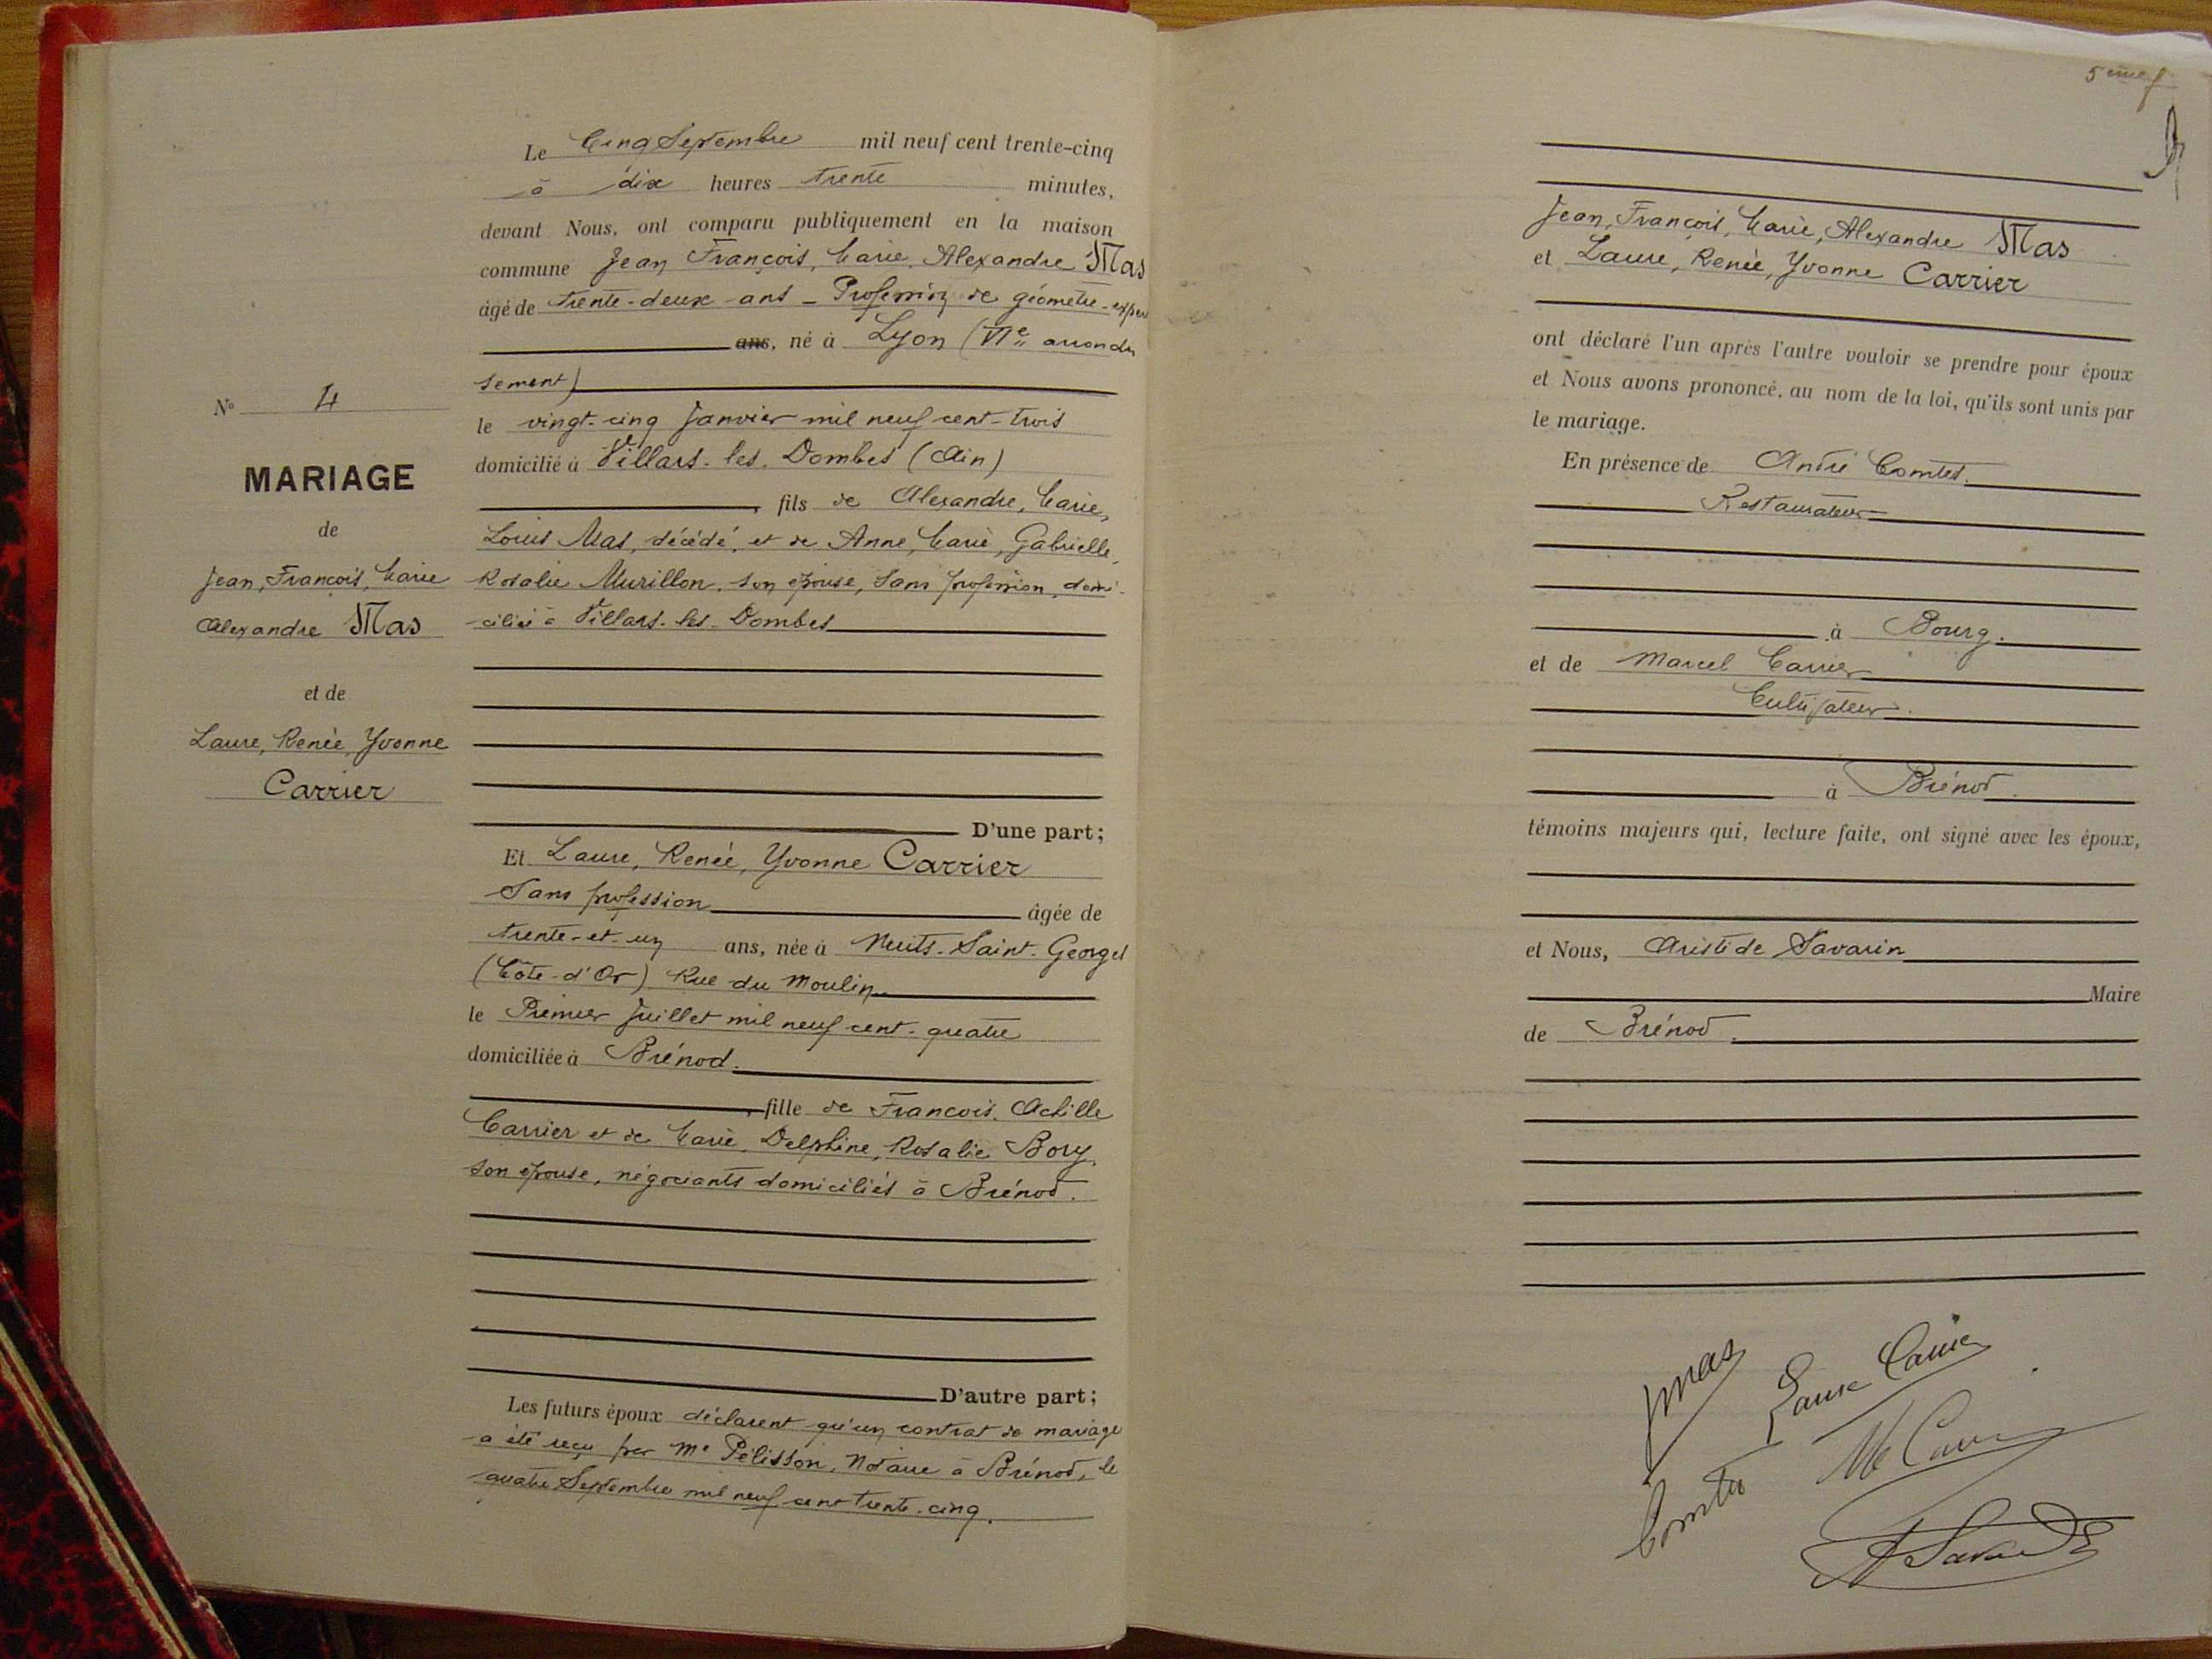 N° 4
MARIAGE
de
Jean, François, Marie
Alexandre Mas
et de
Laure, Renée, Yvonne
Carrier
Le Cinq Septembre mil neuf cent trente-cinq
à dix heures trente minutes,
devant Nous, ont comparu publiquement en la maison
commune Jean François, Marie, Alexandre Mas
âgé de trente-deux ans - Profession de géomètre-exper
ans, né à Lyon (VIe arrondis
sement)
le vingt-cinq Janvier mil neuf cent-trois
domicilié à Villars-les-Dombes (Ain)
, fils de Alexandre, Marie,
Louis Mas, décédé, et de Anne, Marie, Gabrielle,
Rosalie Murillon, son épouse, sans profession, domi-
ciliée à Villars-les-Dombes
D'une part;
Et Laure, Renée, Yvonne Carrier
Sans profession âgée de
trente-et-un ans, née à Nuits-Saint-Georges
(Côte-d'Or) Rue du Moulin
le Premier Juillet mil neuf cent-quatre
domiciliée à Brénod.
, fille de François, Achille
Carrier et de Marie, Delphine, Rosalie Bory,
son épouse, négociants domiciliés à Brénod.
D'autre part;
Les futurs époux déclarent qu'un contrat de mariage
a été reçu par Me Pélisson, Notaire à Brénod, le
quatre Septembre mil neuf cent trente-cinq.
Jean, François, Marie, Alexandre Mas
et Laure, Renée, Yvonne Carrier
ont déclaré l'un après l'autre vouloir se prendre pour époux
et Nous avons prononcé, au nom de la loi, qu'ils sont unis par
le mariage.
En présence de André Comtet.
Restaurateur
à Bourg.
et de Marcel Carrier
Cultivateur.
à Brénod.
témoins majeurs qui, lecture faite, ont signé avec les époux,
et Nous, Aristide Savarin
Maire
de Brénod.
JMas
Laure Carrier
Comtet
M Carrier
A Savarin